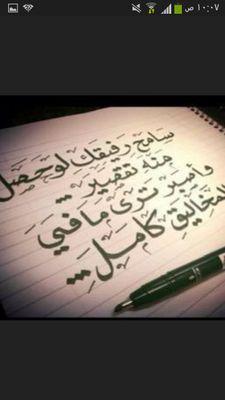 ١٠:٠٧ ص
سامح رفيقك لو حصل
منه تقصير..
وأصبر ترى ما في
المخاليق كامل...